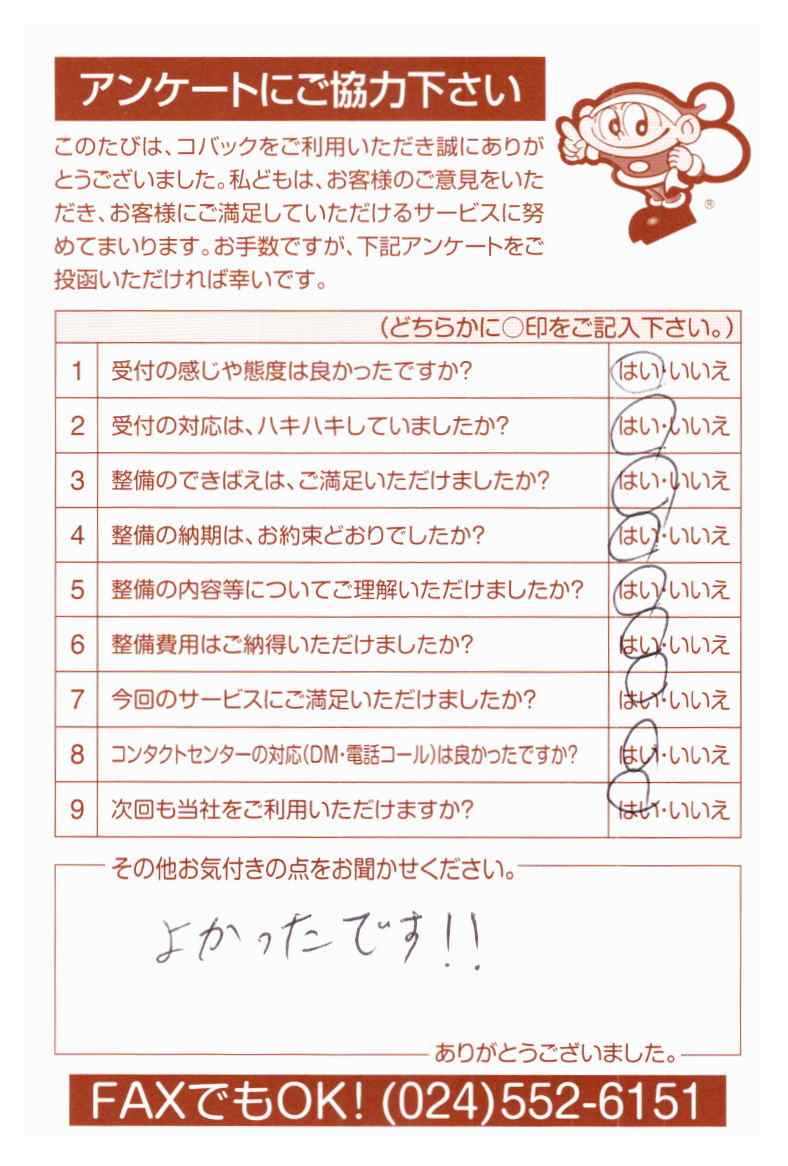 アンケートにご協力下さい
このたびは、コバックをご利用いただき誠にありが
とうございました。私どもは、お客様のご意見をいた
だき、お客様にご満足していただけるサービスに努
めてまいります。お手数ですが、下記アンケートをご
投函いただければ幸いです。
®
(どちらかに○印をご記入下さい。)
1 受付の感じや態度は良かったですか? はい・いいえ
2 受付の対応は、ハキハキしていましたか? はい・いいえ
3 整備のできばえは、ご満足いただけましたか? はい・いいえ
4 整備の納期は、お約束どおりでしたか? はい・いいえ
5 整備の内容等についてご理解いただけましたか? はい・いいえ
6 整備費用はご納得いただけましたか? はい・いいえ
7 今回のサービスにご満足いただけましたか? はい・いいえ
8 コンタクトセンターの対応(DM・電話コール)は良かったですか? はい・いいえ
9 次回も当社をご利用いただけますか? はい・いいえ
その他お気付きの点をお聞かせください。
よかったです!!
ありがとうございました。
FAXでもOK! (024)552-6151